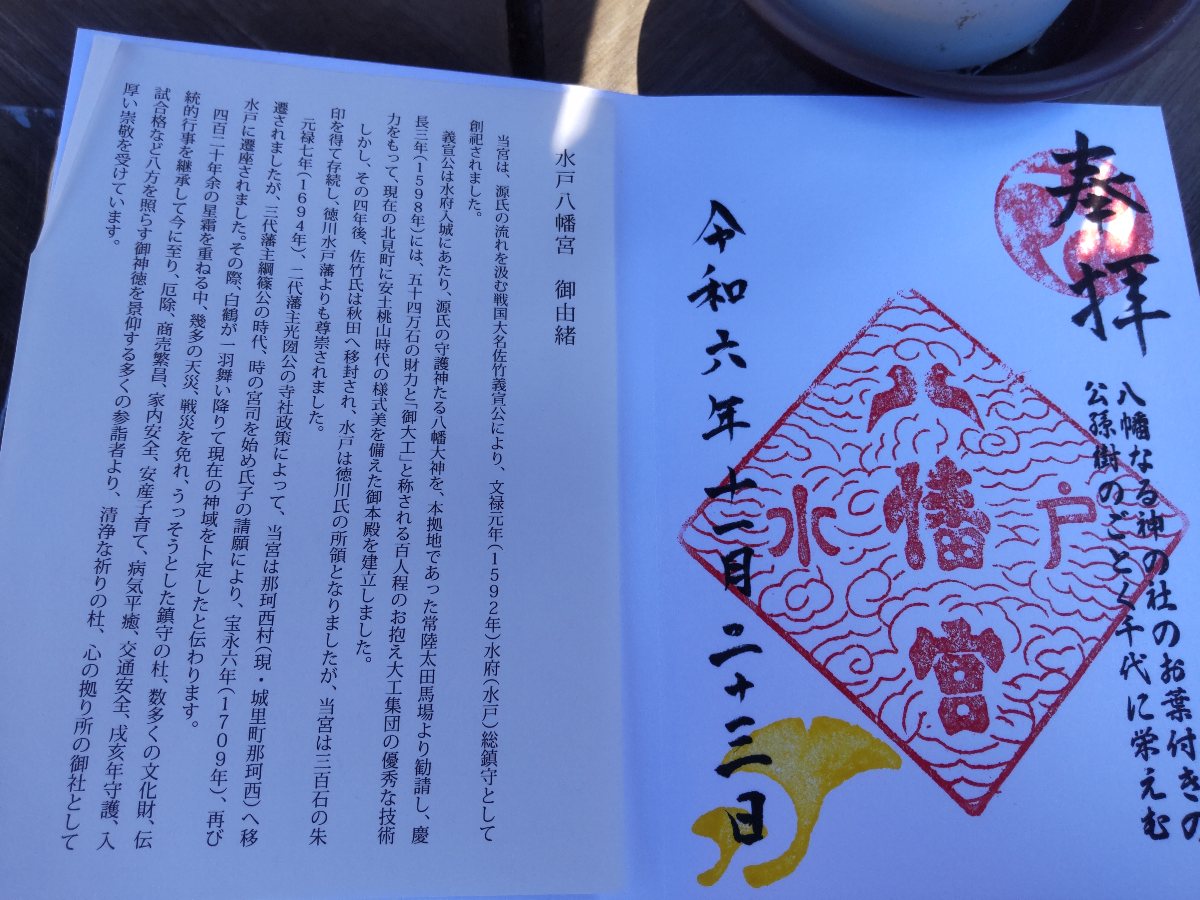 奉拝
八幡なる神の社のお葉付きの
公孫樹のごとく千代に栄えむ
水戸
八幡宮
令和六年十一月二十三日
水戸八幡宮　御由緒
当宮は、源氏の流れを汲む戦国大名佐竹義宣公により、文禄元年(1592年)水府(水戸)総鎮守として
創祀されました。
義宣公は水府入城にあたり、源氏の守護神たる八幡大神を、本拠地であった常陸太田馬場より勧請し、慶
長三年(1598年)には、五十四万石の財力と「御大工」と称される百人程のお抱え大工集団の優秀な技術
力をもって、現在の北見町に安土桃山時代の様式美を備えた御本殿を建立しました。
しかし、その四年後、佐竹氏は秋田へ移封され、水戸は徳川氏の所領となりましたが、当宮は三百石の朱
印を得て存続し、徳川水戸藩よりも尊崇されました。
元禄七年(1694年)、二代藩主光圀公の寺社政策によって、当宮は那珂西村(現・城里町那珂西)へ移
遷されましたが、三代藩主綱篠公の時代、時の宮司を始め氏子の請願により、宝永六年(1709年)、再び
水戸に遷座されました。その際、白鶴が一羽舞い降りて現在の神域を卜定したと伝わります。
四百二十年余の星霜を重ねる中、幾多の天災、戦災を免れ、うっそうとした鎮守の杜、数多くの文化財、伝
統的行事を継承して今に至り、厄除、商売繁昌、家内安全、安産子育て、病気平癒、交通安全、戌亥年守護、入
試合格など八方を照らす御神徳を景仰する多くの参詣者より、清浄な祈りの杜、心の拠り所の御社として
厚い崇敬を受けています。